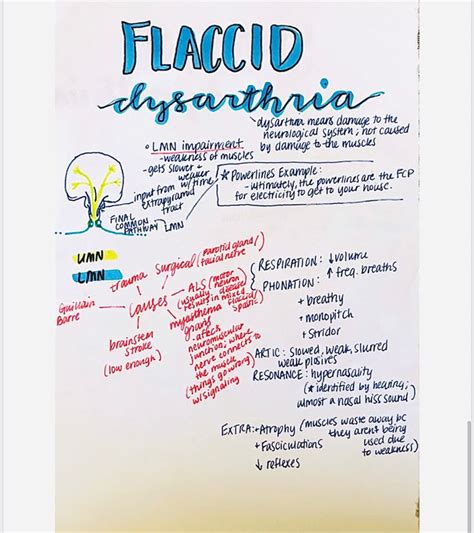 FLACCID
dysarthria
dysarthria means damage to the
neurological system; not caused
by damage to the muscles
• LMN impairment
- weakness of muscles
- gets slower +
weaker
w/time
★ Powerlines Example:
- ultimately, the powerlines are the FCP
for electricity to get to your house.
input from
extrapyramidal
tract
FINAL
COMMON
PATHWAY
LMN
UMN
LMN
causes
trauma
surgical (parotid gland/
facial nerve)
ALS (motor
neuron
disease)
(usually
results in mixed
flaccid
spastic)
myasthenia
gravis
- affects
neuromuscular
junction; where
nerve connects to
the muscle
(things go wrong
w/signaling)
brainstem
stroke
(low enough)
Guillain
Barre
RESPIRATION: ↓volume
↑ freq. breaths
PHONATION:
+ breathy
+ monopitch
+ stridor
ARTIC: slowed, weak, slurred
weak plosives
RESONANCE: hypernasality
(★ identified by hearing;
almost a nasal hiss sound)
EXTRA: + Atrophy (muscles waste away bc
they aren't being
used due
to weakness)
+ Fasciculations
↓ reflexes